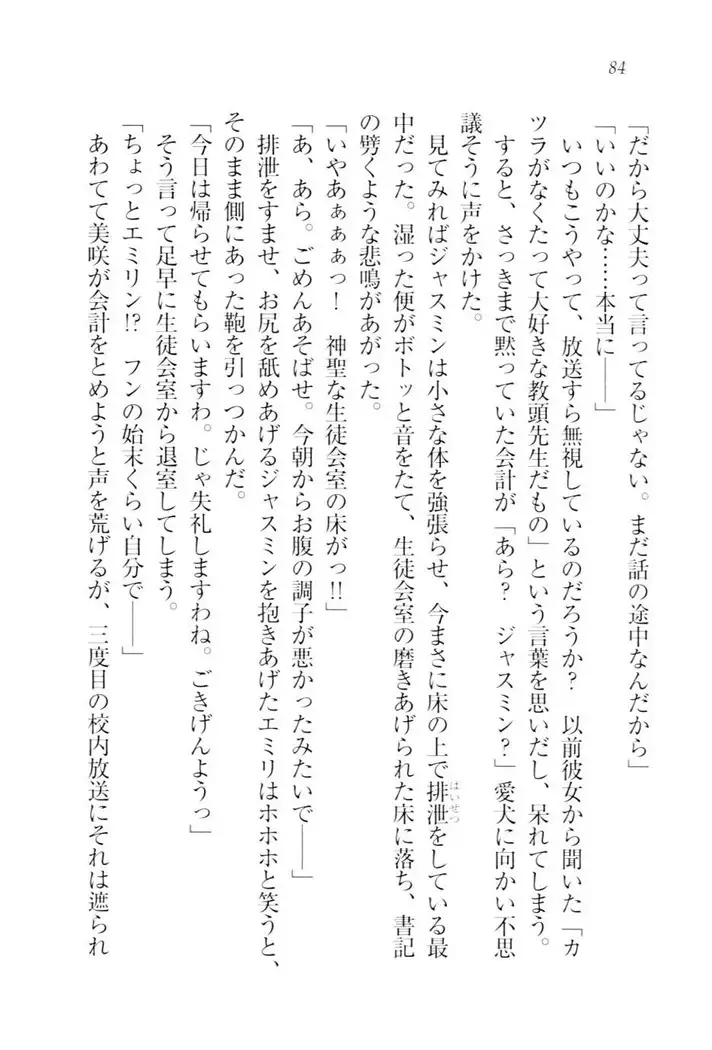 84
「だから大丈夫って言ってるじゃない。まだ話の途中なんだから」
「いいのかな……本当に――」
　いつもこうやって、放送すら無視しているのだろうか?　以前彼女から聞いた「カ
ツラがなくたって大好きな教頭先生だもの」という言葉を思いだし、呆れてしまう。
　すると、さっきまで黙っていた会計が「あら?　ジャスミン?」愛犬に向かい不思
議そうに声をかけた。
　見てみればジャスミンは小さな体を強張らせ、今まさに床の上で排泄をしている最
はいせつ
中だった。湿った便がボトッと音をたて、生徒会室の磨きあげられた床に落ち、書記
の劈くような悲鳴があがった。
「いやあぁぁぁっ!　神聖な生徒会室の床がっ!!」
「あ、あら。ごめんあそばせ。今朝からお腹の調子が悪かったみたいで――」
　排泄をすませ、お尻を舐めあげるジャスミンを抱きあげたエミリはホホホと笑うと、
そのまま側にあった鞄を引っつかんだ。
「今日は帰らせてもらいますわ。じゃ失礼しますわね。ごきげんようっ」
　そう言って足早に生徒会室から退室してしまう。
「ちょっとエミリン!?　フンの始末くらい自分で――」
　あわてて美咲が会計をとめようと声を荒げるが、三度目の校内放送にそれは遮られ